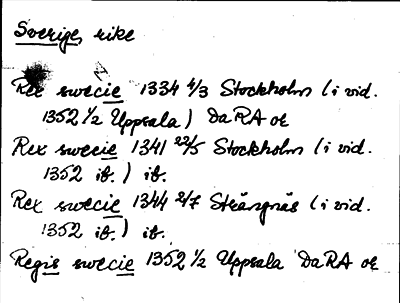 Sverige, rike
Rex swecie 1334 4/3 Stockholm (i vid.
1352 1/2 Uppsala) DaRA or
Rex swecie 1341 22/5 Stockholm (i vid.
1352 ib.) ib.
Rex swecie 1344 2/7 Strängnäs (i vid.
1352 ib.) ib.
Regis swecie 1352 1/2 Uppsala DaRA or